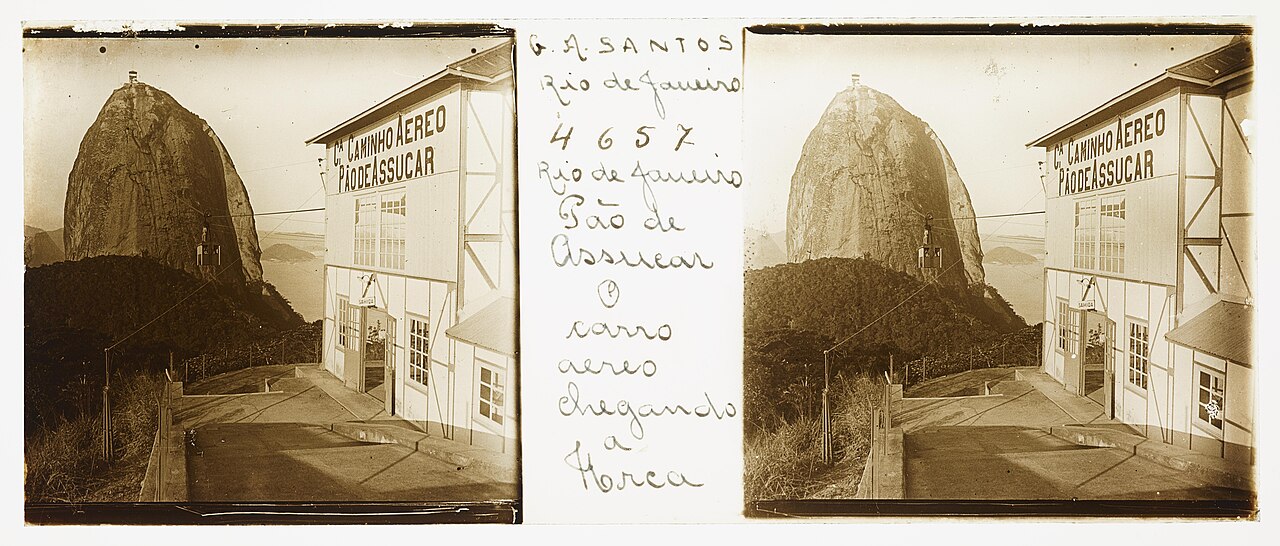 Cᴬ CAMINHO AEREO
PÃO DE ASSUCAR
SAHIDA
G. A. SANTOS
Rio de Janeiro
4657
Rio de Janeiro
Pão de
Assucar
O
carro
aereo
chegando
a
Urca
Cᴬ CAMINHO AEREO
PÃO DE ASSUCAR
SAHIDA